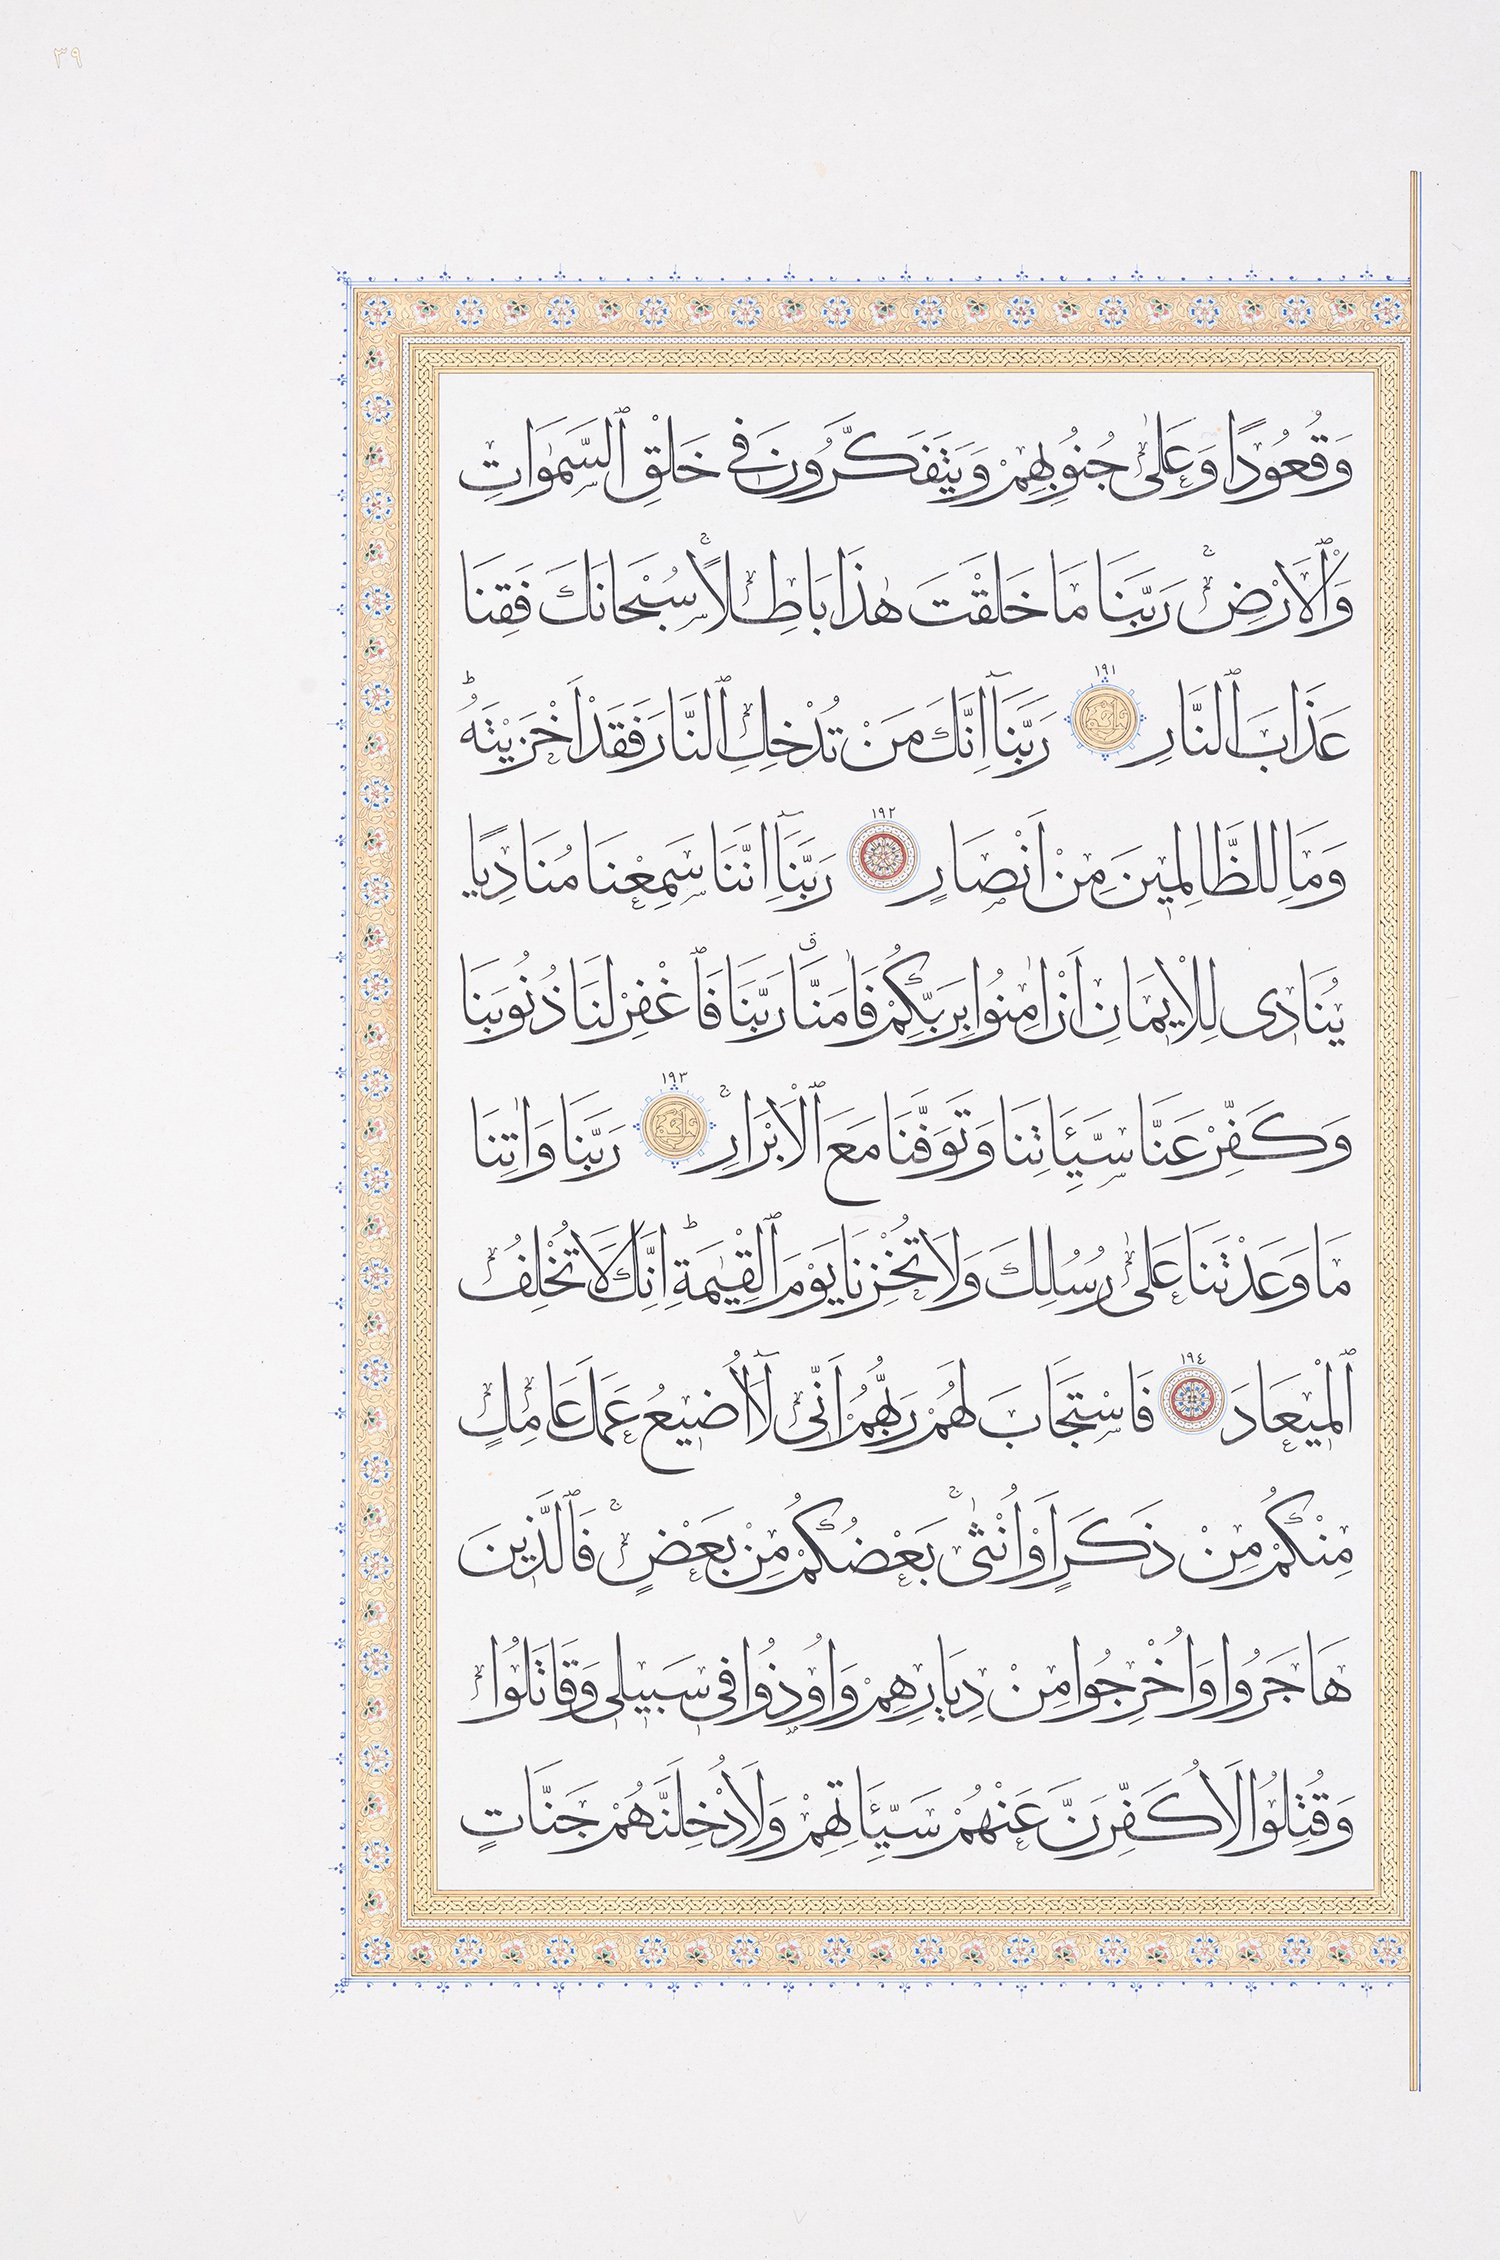 ٣٩
وَقُعُودًا وَعَلٰى جُنُوبِهِمْ وَيَتَفَكَّرُونَ فٖى خَلْقِ ٱلسَّمٰوَاتِ
وَٱلْاَرْضِۚ رَبَّنَا مَا خَلَقْتَ هٰذَا بَاطِلًاۚ سُبْحَانَكَ فَقِنَا
عَذَابَ ٱلنَّارِ ١٩١ رَبَّنَآ اِنَّكَ مَنْ تُدْخِلِ ٱلنَّارَ فَقَدْ اَخْزَيْتَهُؕ
وَمَا لِلظَّالِمٖينَ مِنْ اَنْصَارٍ ١٩٢ رَبَّنَآ اِنَّنَا سَمِعْنَا مُنَادِيًا
يُنَادٖى لِلْاٖيمَانِ اَنْ اٰمِنُوا بِرَبِّكُمْ فَاٰمَنَّاۗ رَبَّنَا فَٱغْفِرْ لَنَا ذُنُوبَنَا
وَكَفِّرْ عَنَّا سَيِّـَٔاتِنَا وَتَوَفَّنَا مَعَ ٱلْاَبْرَارِۚ ١٩٣ رَبَّنَا وَاٰتِنَا
مَا وَعَدْتَنَا عَلٰى رُسُلِكَ وَلَا تُخْزِنَا يَوْمَ ٱلْقِيٰمَةِؕ اِنَّكَ لَا تُخْلِفُ
ٱلْمٖيعَادَ ١٩٤ فَاسْتَجَابَ لَهُمْ رَبُّهُمْ اَنّٖى لَآ اُضٖيعُ عَمَلَ عَامِلٍ
مِنْكُمْ مِنْ ذَكَرٍ اَوْ اُنْثٰىۚ بَعْضُكُمْ مِنْ بَعْضٍۚ فَٱلَّذٖينَ
هَاجَرُوا وَاُخْرِجُوا مِنْ دِيَارِهِمْ وَاُوذُوا فٖى سَبٖيلٖى وَقَاتَلُوا
وَقُتِلُوا لَاُكَفِّرَنَّ عَنْهُمْ سَيِّـَٔاتِهِمْ وَلَاُدْخِلَنَّهُمْ جَنَّاتٍ